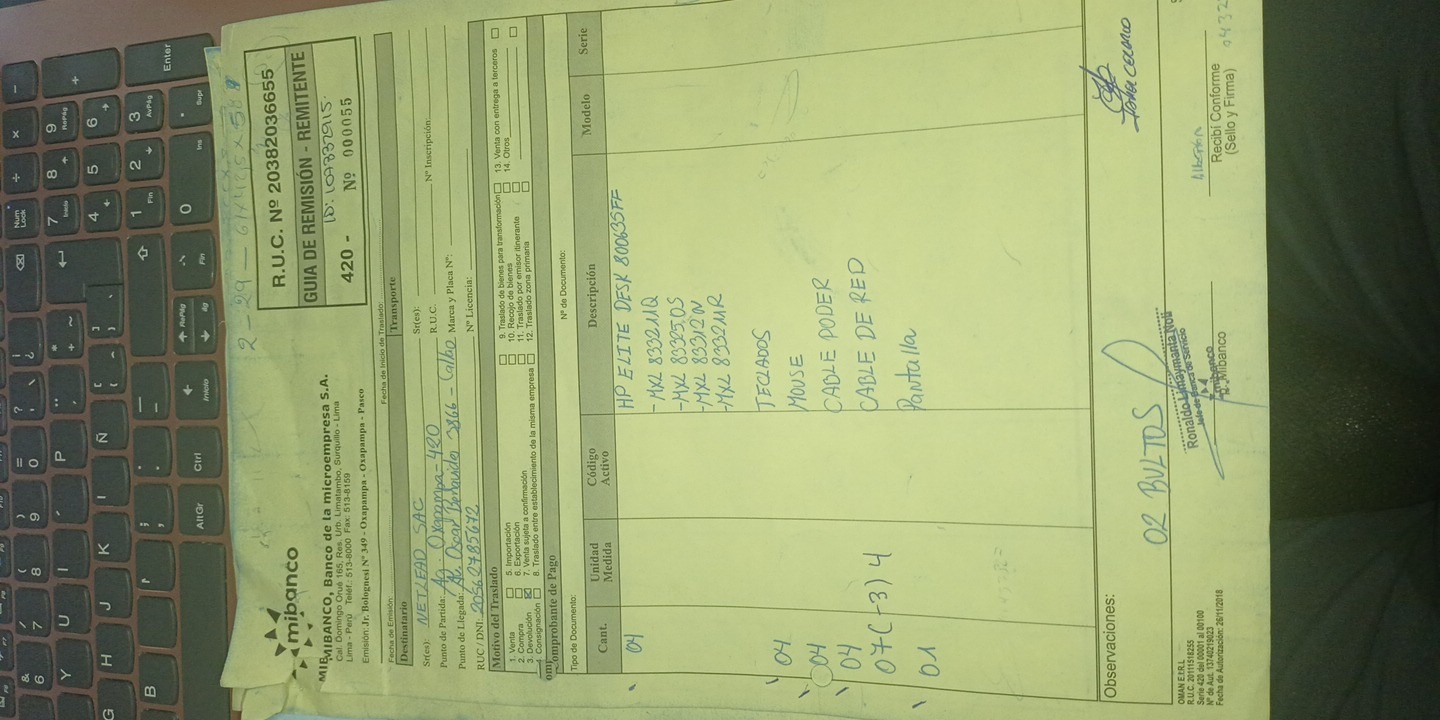 mibanco
MIBANCO, Banco de la microempresa S.A.
Cal. Domingo Orué 165, Res. Urb. Limatambo, Surquillo - Lima
Lima - Perú Teléf.: 513-8000 Fax: 513-8159
Emisión: Jr. Bolognesi N° 349 - Oxapampa - Oxapampa - Pasco
R.U.C. Nº 20382036655
GUIA DE REMISIÓN - REMITENTE
420 - Nº 000055
Fecha de Emisión:
Fecha de Inicio de Traslado:
Destinatario
Transporte
Sr(es): NETLEAD SAC
Sr(es):
Punto de Partida: Ag. Oxapampa - 420
R.U.C.
N° Inscripción:
Punto de Llegada: Av. Oscar Benavides 3866 - Callao
Marca y Placa N°:
RUC / DNI: 20562785672
N° Licencia:
Motivo del Traslado
1. Venta
2. Compra
3. Devolución
4. Consignación
5. Importación
6. Exportación
7. Venta sujeta a confirmación
8. Traslado entre establecimiento de la misma empresa
9. Traslado de bienes para transformación
10. Recojo de bienes
11. Traslado por emisor itinerante
12. Traslado zona primaria
13. Venta con entrega a terceros
14. Otros
Comprobante de Pago
Tipo de Documento:
N° de Documento:
Cant. Unidad Medida Código Activo Descripción Modelo Serie
04 HP ELITE DESK 800G35FF
- MXL 833211Q
- MXL 83350S
- MXL 83312W
- MXL 833211R
04 TECLADOS
04 MOUSE
04 CABLE PODER
07 (-3) 4 CABLE DE RED
01 Pantalla
Observaciones:
02 BULTOS
Jefe de Banca de Servicio
Mibanco
P. Mibanco
Recibí Conforme
(Sello y Firma)
OMAN E.I.R.L.
R.U.C. 20111518255
Serie 420 del 00001 al 00100
N° de Aut. 13740219023
Fecha de Autorización: 26/11/2018